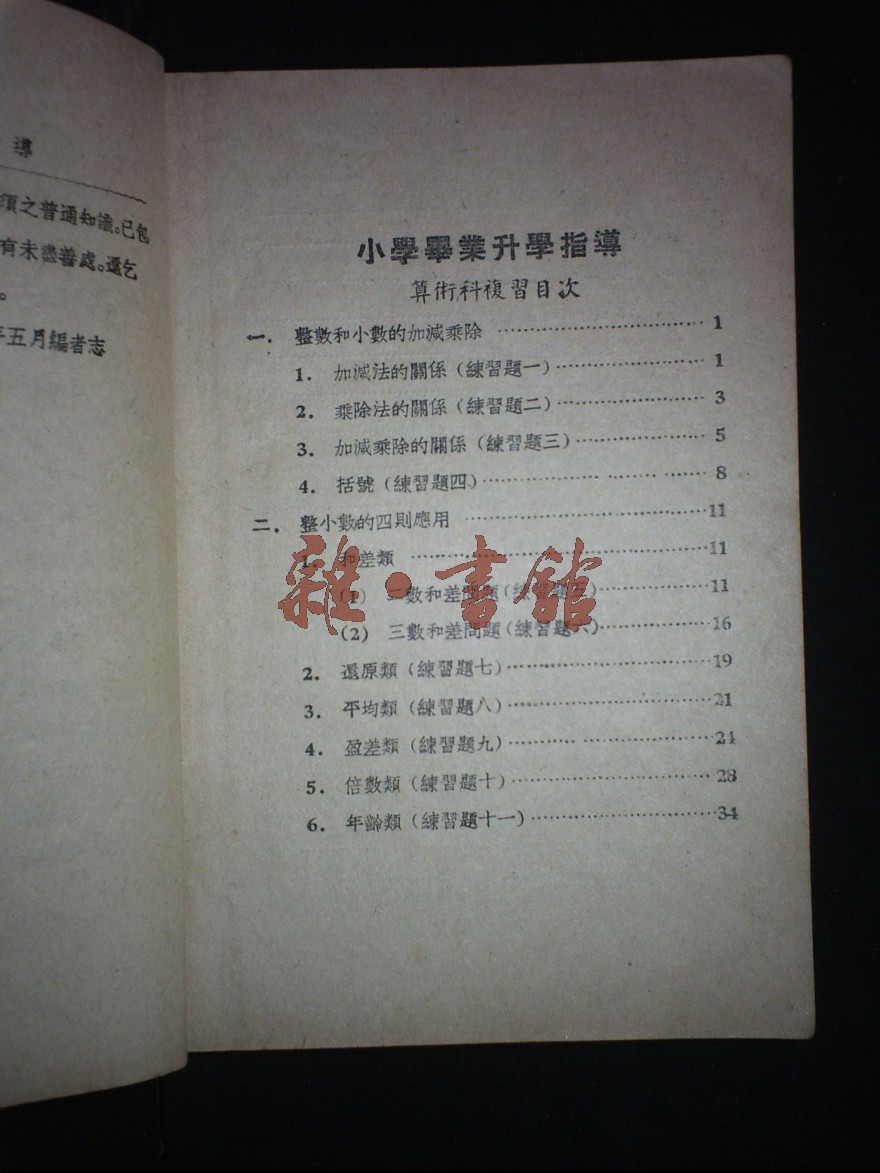 導
須之普通知識。已包
有未盡善處。還乞
。
年五月編者志
小學畢業升學指導
算術科複習目次
一. 整數和小數的加減乘除 ……………………………… 1
1. 加減法的關係(練習題一)……………………… 1
2. 乘除法的關係(練習題二)……………………… 3
3. 加減乘除的關係(練習題三)…………………… 5
4. 括號(練習題四)……………………………… 8
二. 整小數的四則應用 ……………………………… 11
1. 和差類 ……………………………………… 11
(1) 二數和差問題(練習題五)……………… 11
(2) 三數和差問題(練習題六)……………… 16
2. 還原類(練習題七)…………………………… 19
3. 平均類(練習題八)…………………………… 21
4. 盈差類(練習題九)…………………………… 24
5. 倍數類(練習題十)…………………………… 28
6. 年齡類(練習題十一)………………………… 34
雜·書館